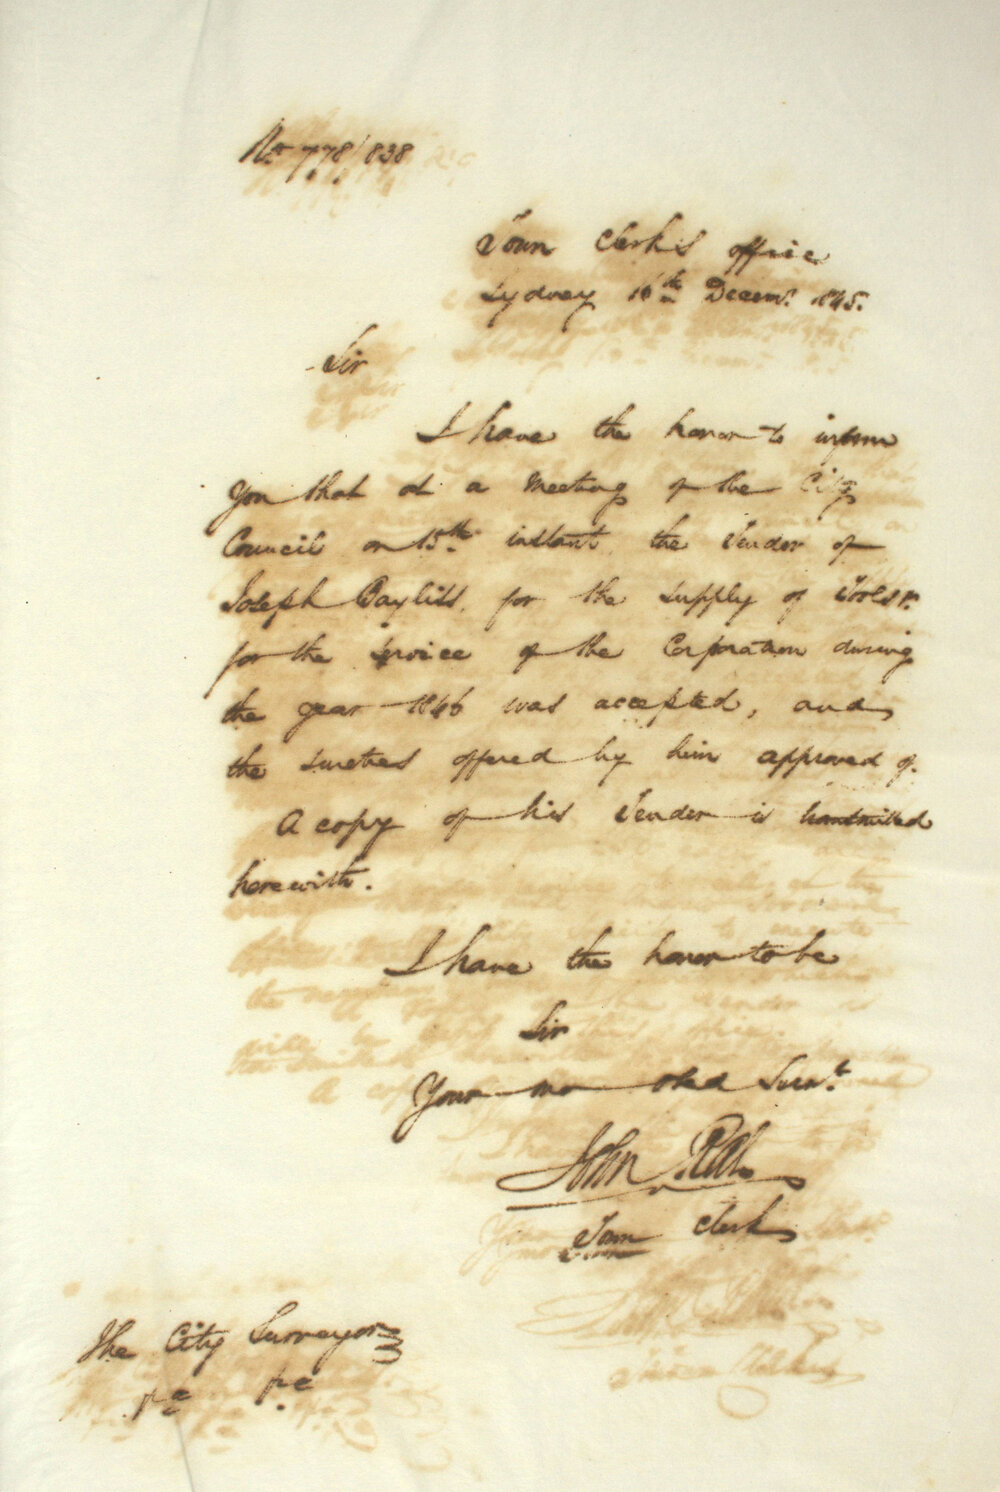 No 778/838
Town Clerk's office
Sydney 16th Decemr. 1845.
Sir
I have the honor to inform
you that at a Meeting of the City
Council on 15th instant the Tender of
Joseph Bayliss, for the supply of Tools
for the Service of the Corporation during
the year 1846 was accepted, and
the sureties offered by him approved of.
A copy of his Tender is
herewith.
I have the honor to be
Sir
Your mo obed Servt.
John
Town Clerk
The City Surveyor
&c &c